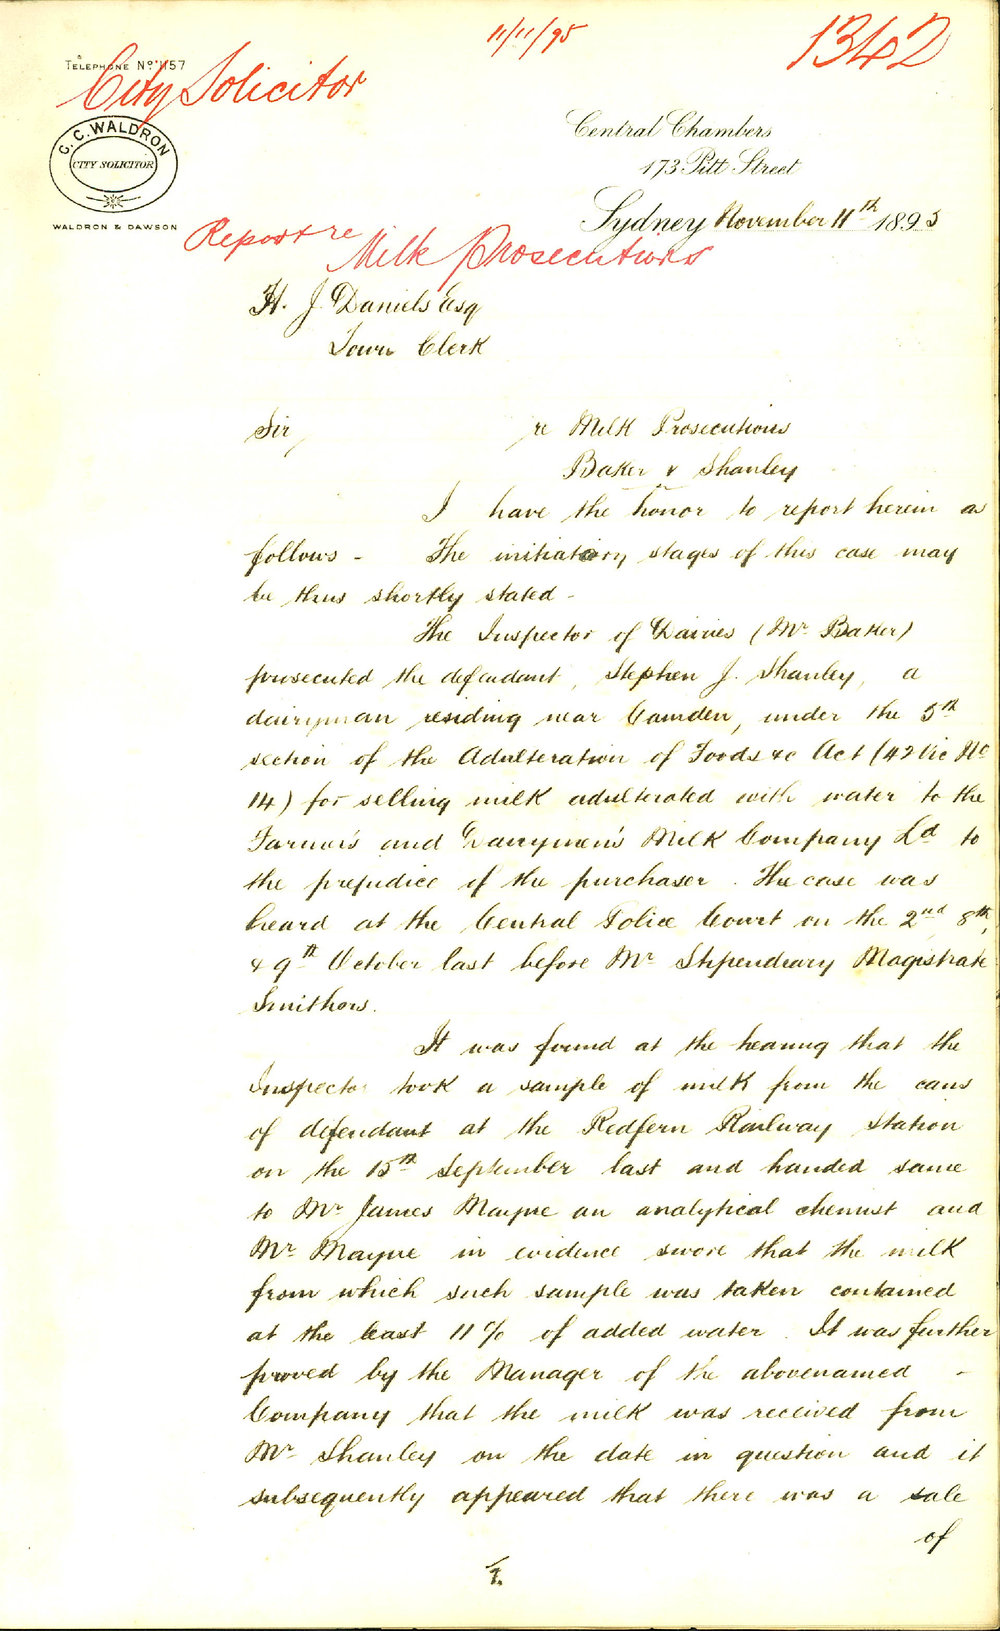 11/11/95
1342
TELEPHONE No. 1157
City Solicitor
G. C. WALDRON
CITY SOLICITOR
WALDRON & DAWSON
Central Chambers
173 Pitt Street
Sydney November 11th 1895
Report re
Milk Prosecutions
H. J. Daniels Esq
Town Clerk
Sir, re Milk Prosecutions
Baker v Shanley
I have the honor to report herein as
follows - The initiatory stages of this case may
be thus shortly stated -
The Inspector of Dairies (Mr Baker)
prosecuted the defendant, Stephen J. Shanley, a
dairyman residing near Camden, under the 5th
section of the Adulteration of Foods &c Act (42 Vic No
14) for selling milk adulterated with water to the
Farmer's and Dairymen's Milk Company Ld to
the prejudice of the purchaser. The case was
heard at the Central Police Court on the 2nd, 8th,
& 9th October last before Mr Stipendiary Magistrate
Smithers.
It was found at the hearing that the
Inspector took a sample of milk from the cans
of defendant at the Redfern Railway Station
on the 15th September last and handed same
to Mr James Mayne an analytical chemist and
Mr Mayne in evidence swore that the milk
from which such sample was taken contained
at the least 11% of added water. It was further
proved by the Manager of the abovenamed -
Company that the milk was received from
Mr Shanley on the date in question and it
subsequently appeared that there was a sale
of
1.